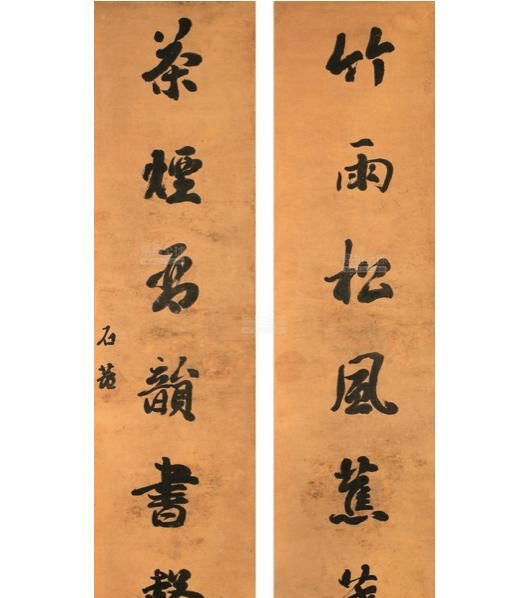 竹雨松風蕉
茶煙琴韻書
石菴